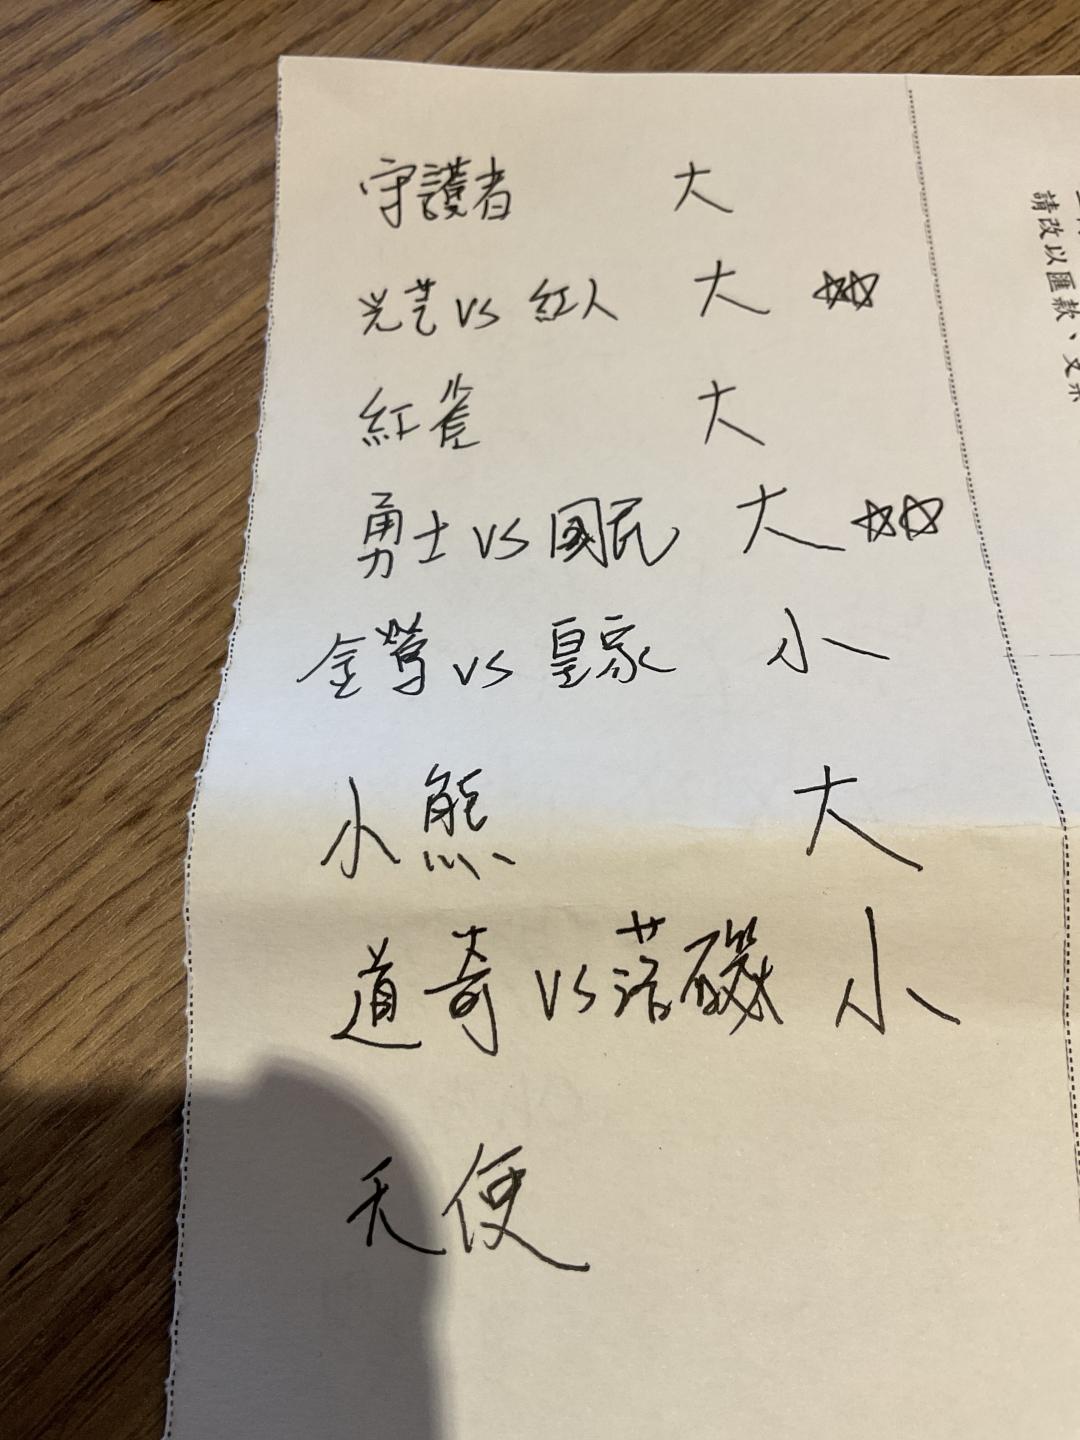 守護者 大
光芒 vs 紅人 大 ☆☆
紅雀 大
勇士 vs 國民 大 ☆☆
金鶯 vs 皇家 小
小熊 大
道奇 vs 落磯 小
天使
請改以匯款、